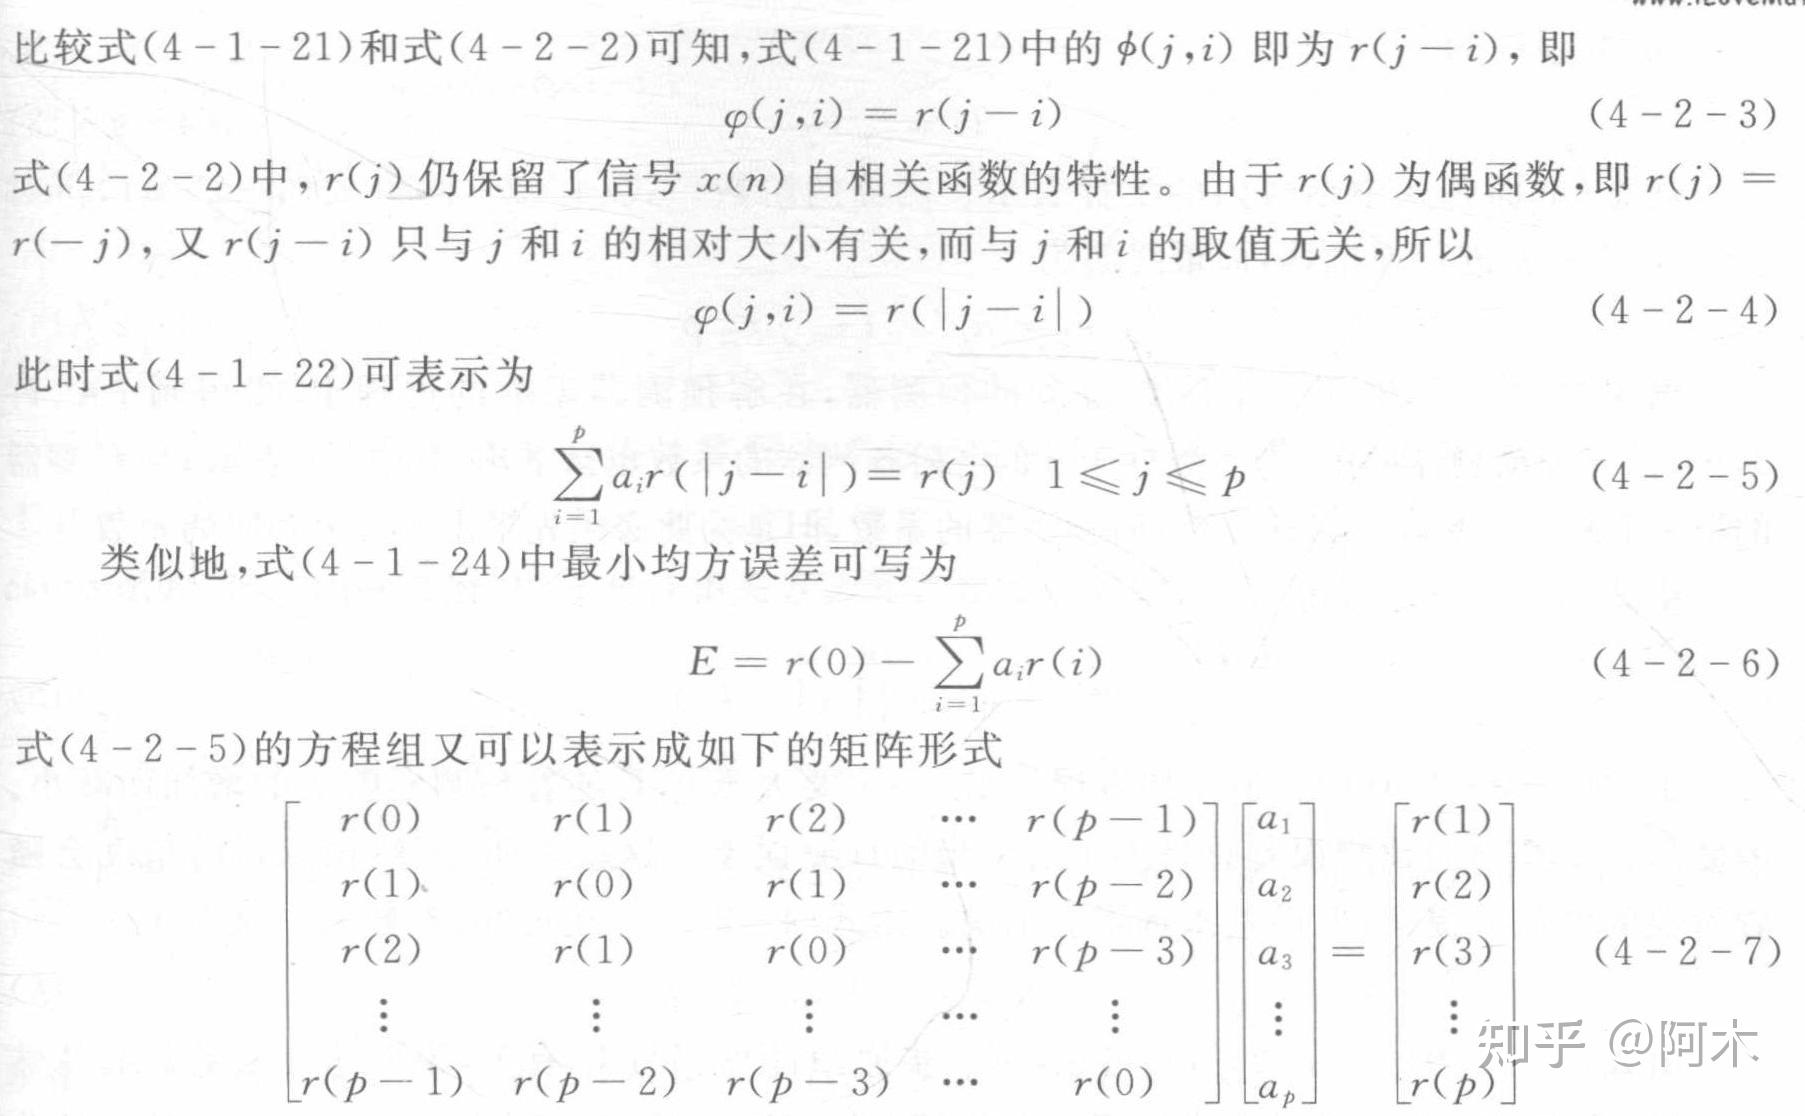 比较式(4-1-21)和式(4-2-2)可知,式(4-1-21)中的 ϕ(j,i) 即为 r(j-i), 即
φ(j,i) = r(j-i) (4-2-3)
式(4-2-2)中, r(j) 仍保留了信号 x(n) 自相关函数的特性。由于 r(j) 为偶函数,即 r(j) =
r(-j), 又 r(j-i) 只与 j 和 i 的相对大小有关,而与 j 和 i 的取值无关,所以
φ(j,i) = r(|j-i|) (4-2-4)
此时式(4-1-22)可表示为
∑_{i=1}^{p} a_i r(|j-i|) = r(j) 1 ≤ j ≤ p (4-2-5)
类似地,式(4-1-24)中最小均方误差可写为
E = r(0) - ∑_{i=1}^{p} a_i r(i) (4-2-6)
式(4-2-5)的方程组又可以表示成如下的矩阵形式
[ r(0) r(1) r(2) ⋯ r(p-1) ] [ a_1 ] [ r(1) ]
[ r(1) r(0) r(1) ⋯ r(p-2) ] [ a_2 ] [ r(2) ]
[ r(2) r(1) r(0) ⋯ r(p-3) ] [ a_3 ] = [ r(3) ] (4-2-7)
[ ⋮ ⋮ ⋮ ⋯ ⋮ ] [ ⋮ ] [ ⋮ ]
[ r(p-1) r(p-2) r(p-3) ⋯ r(0) ] [ a_p ] [ r(p) ]
知乎 @阿木